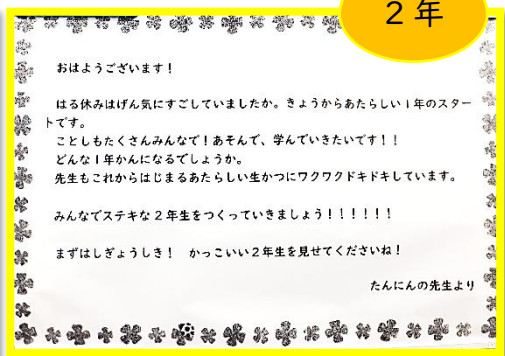 ２年
おはようございます！
はる休みはげん気にすごしていましたか。きょうからあたらしい１年のスター
トです。
ことしもたくさんみんなで！あそんで、学んでいきたいです！！
どんな１年かんになるでしょうか。
先生もこれからはじまるあたらしい生かつにワクワクドキドキしています。
みんなでステキな２年生をつくっていきましょう！！！！！！
まずはしぎょうしき！　かっこいい２年生を見せてくださいね！
たんにんの先生より